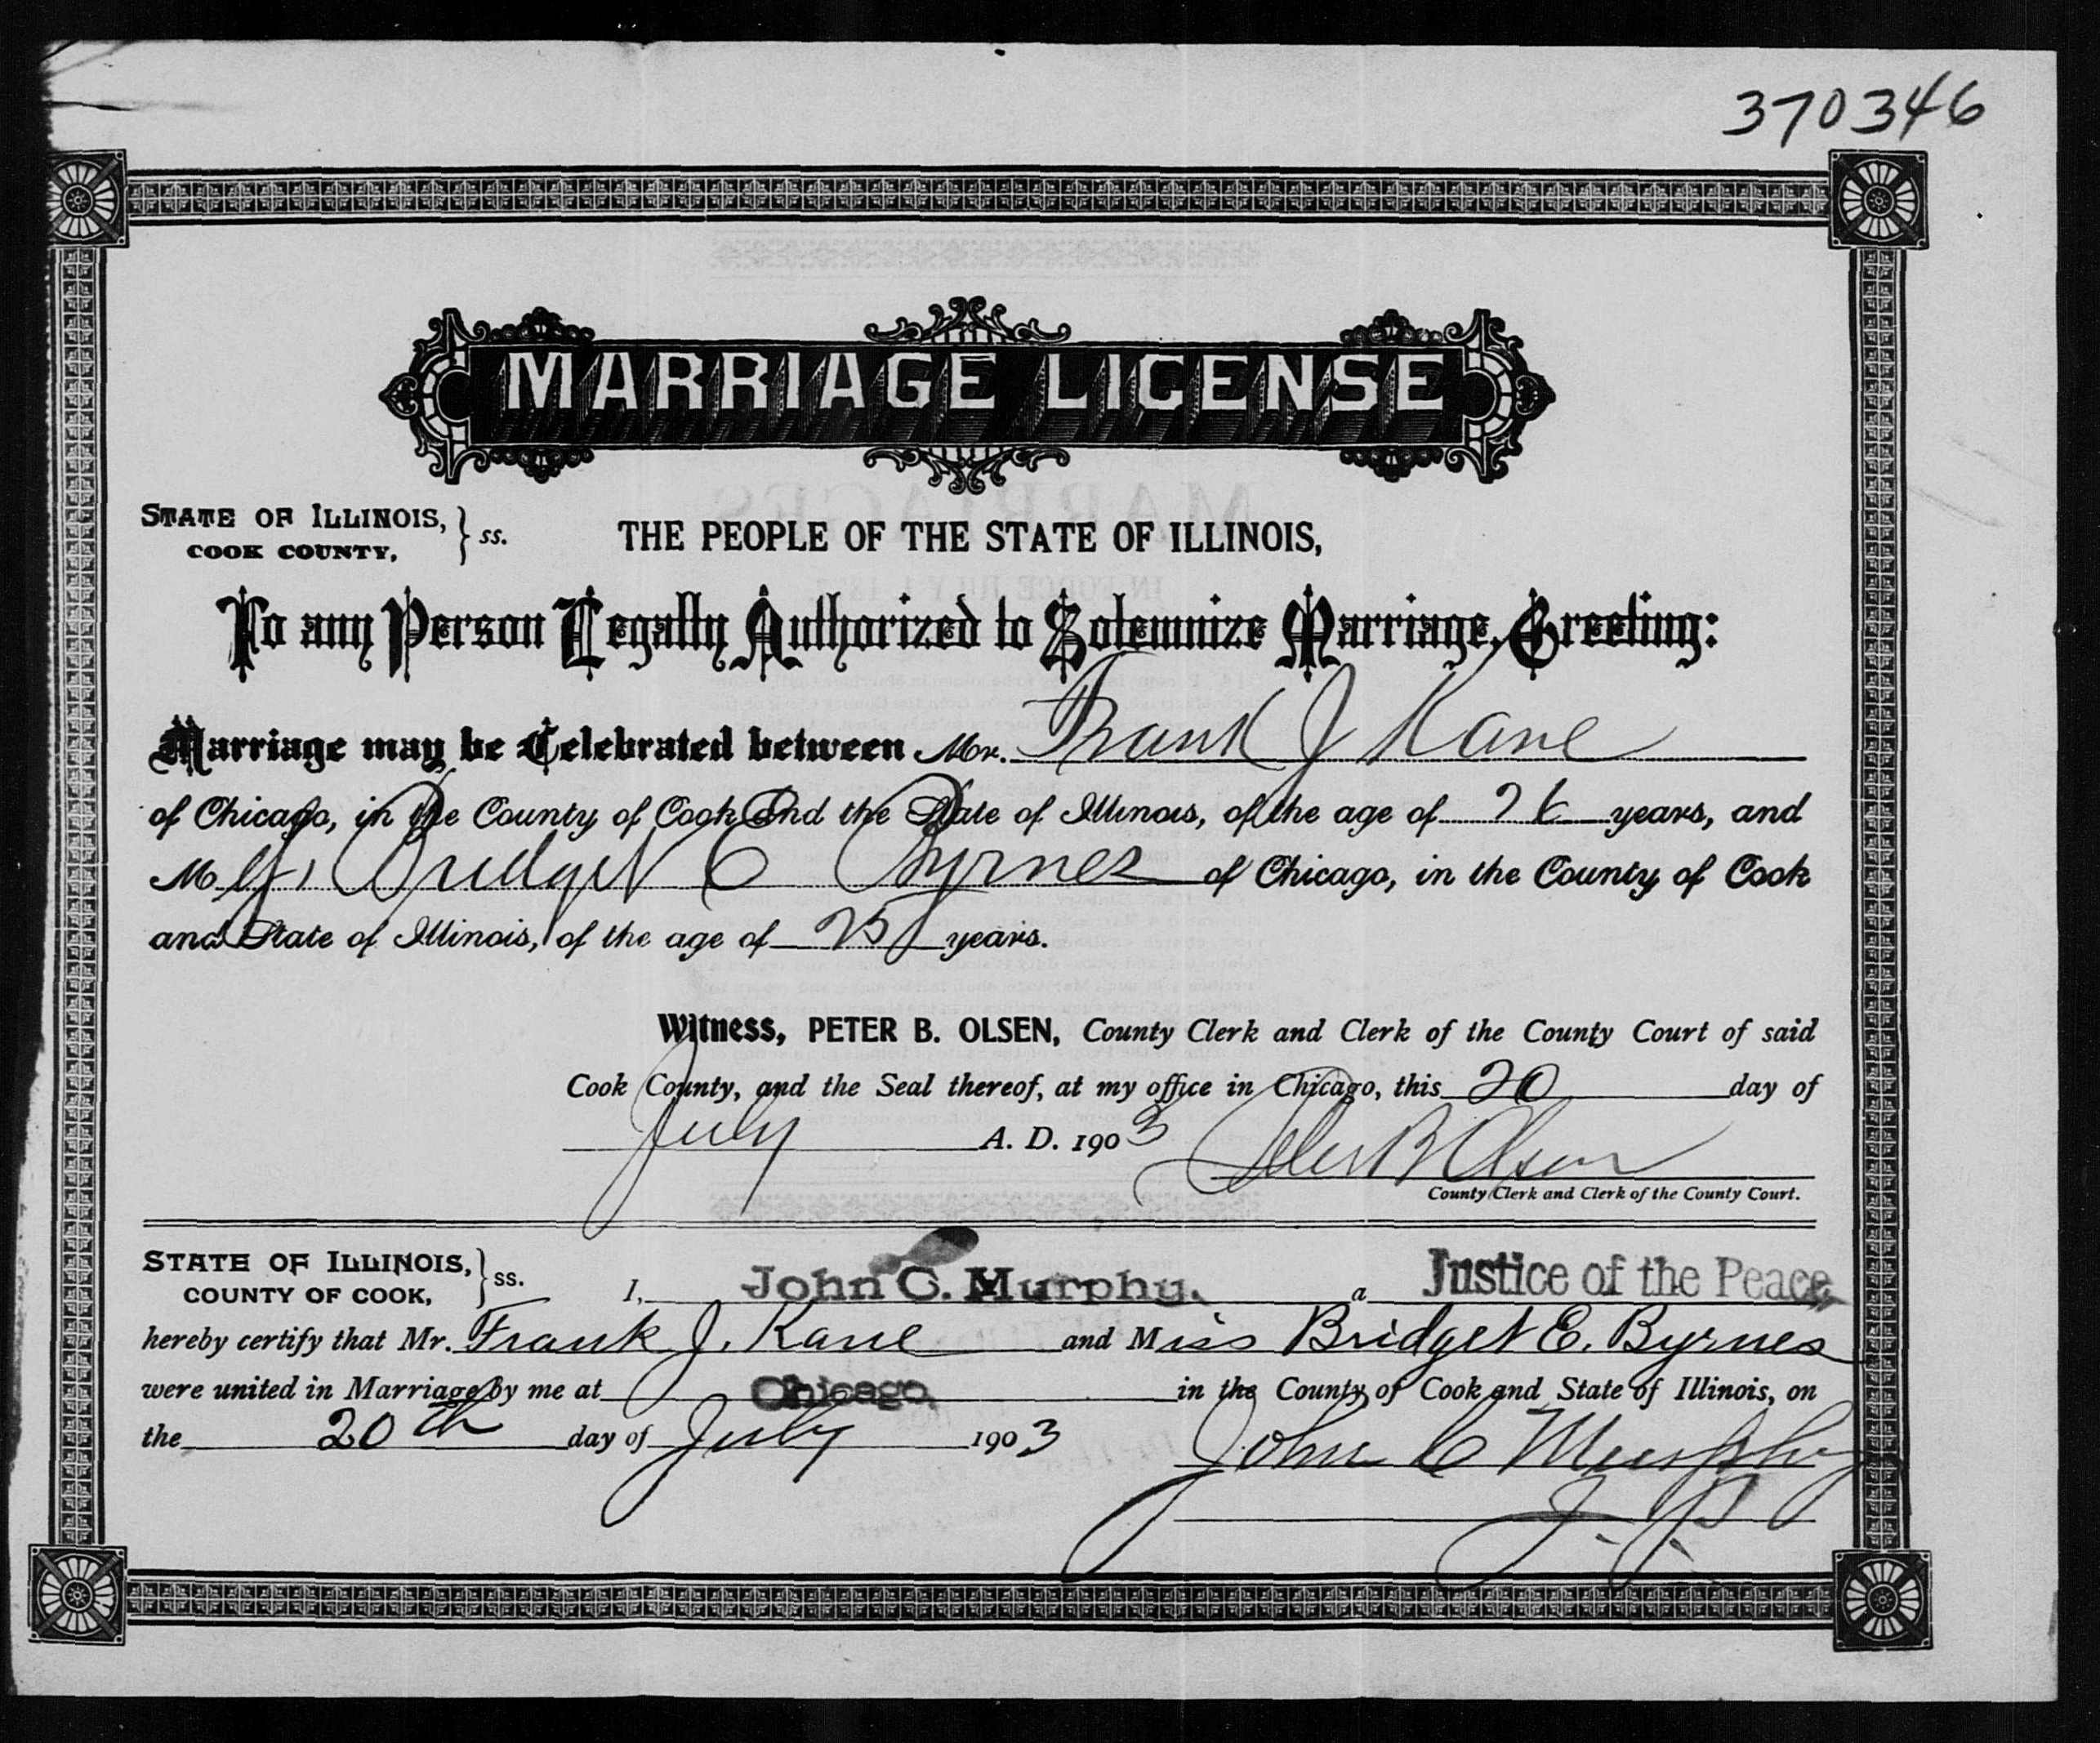 370346
MARRIAGE LICENSE
STATE OF ILLINOIS, } ss. THE PEOPLE OF THE STATE OF ILLINOIS,
COOK COUNTY,
To any Person Legally Authorized to Solemnize Marriage, Greeting:
Marriage may be Celebrated between Mr. Frank J Kane
of Chicago, in the County of Cook and the State of Illinois, of the age of 26 years, and
M Bridget E Byrnes of Chicago, in the County of Cook
and State of Illinois, of the age of 25 years.
Witness, PETER B. OLSEN, County Clerk and Clerk of the County Court of said
Cook County, and the Seal thereof, at my office in Chicago, this 20 day of
July A. D. 1903 Peter B Olsen
County Clerk and Clerk of the County Court.
STATE OF ILLINOIS, } ss. I, John C. Murphy. a Justice of the Peace
COUNTY OF COOK,
hereby certify that Mr. Frank J. Kane and Miss Bridget E. Byrnes
were united in Marriage by me at Chicago in the County of Cook and State of Illinois, on
the 20th day of July 1903 John C Murphy
J. P.